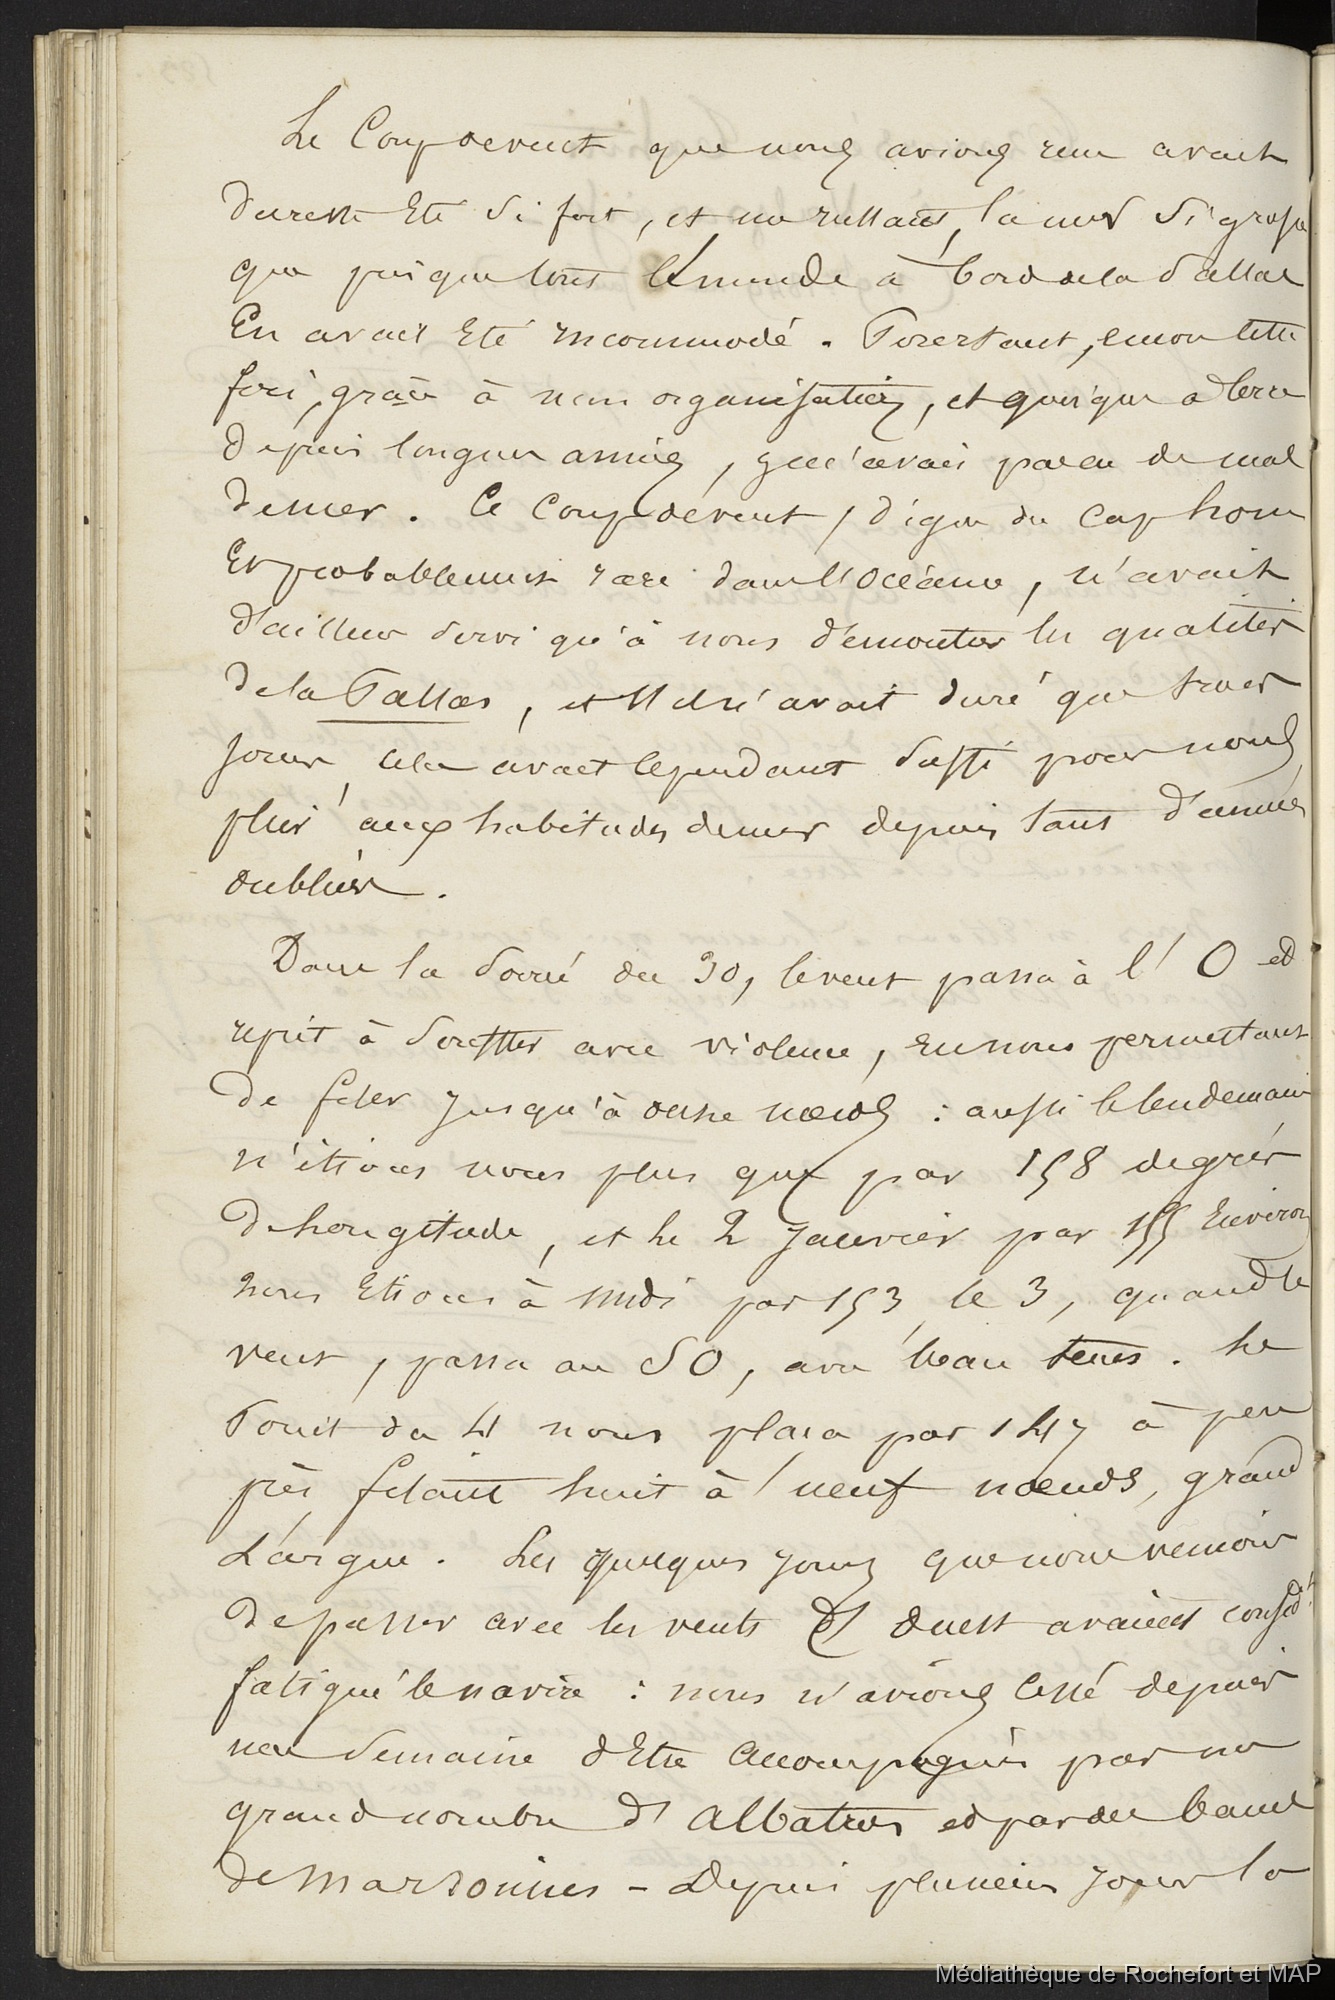 Le Coup de vent que nous avions reçu avait
du reste été si fort, et en resultant, la mer si grosse
que presque tout le monde à bord de la Pallas
En avait été incommodé. Pourtant, encore cette
fois, grâce à mon organisation, et quoique à terre
depuis longues années, je n'avais pas eu de mal
de mer. Ce Coup de vent, digne du Cap horn
Et probablement rare dans l'Océanie, n'avait
d'ailleurs servi qu'à nous démontrer les qualités
de la Pallas, et Il n'avait duré que trois
jours, cela avait cependant suffi pour nous
plier aux habitudes de mer depuis tant d'années
oubliées.
Dans la soirée du 30, le vent passa à l'O et
reprit à souffler avec violence, en nous permettant
de filer jusqu'à onze nœuds : aussi le lendemain
n'étions nous plus que par 158 degrés
de Longitude, et le 2 Janvier par 155 Environ
nous Etions à midi par 153, le 3, quand le
vent, passa au SO, avec beau tems. Le
Point du 4 nous plaça par 147 à peu
près, filant huit à neuf nœuds, grand
Largue. Les quelques jours que nous venions
de passer avec les vents d'Ouest avaient consid.t
fatigué le navire : nous n'avions cessé depuis
une semaine d'Etre accompagnés par un
grand nombre d'Albatros et par des bancs
de Marsouins - Depuis plusieurs jours la
Médiathèque de Rochefort et MAP